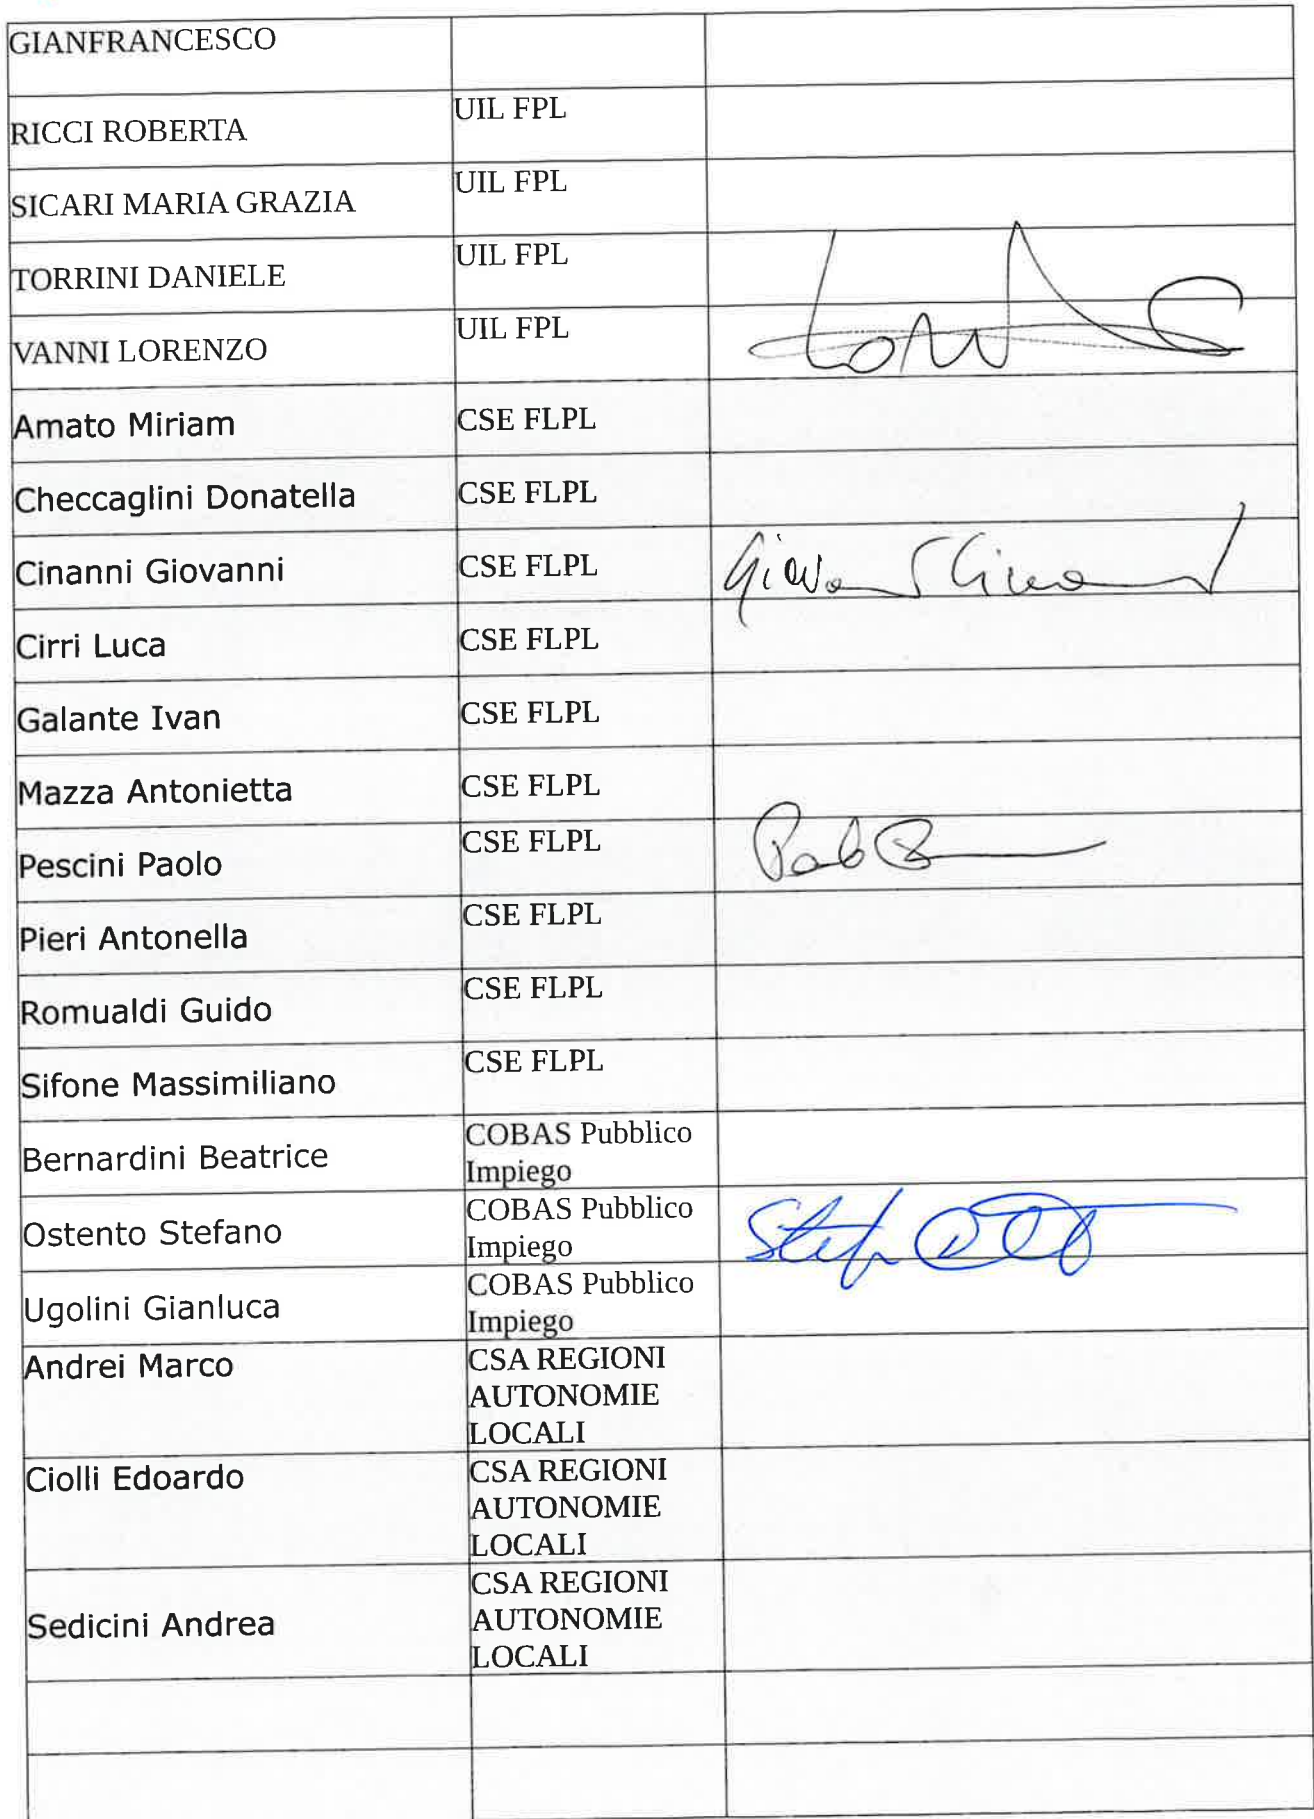 GIANFRANCESCO
RICCI ROBERTA UIL FPL
SICARI MARIA GRAZIA UIL FPL
TORRINI DANIELE UIL FPL
VANNI LORENZO UIL FPL
Amato Miriam CSE FLPL
Checcaglini Donatella CSE FLPL
Cinanni Giovanni CSE FLPL
Cirri Luca CSE FLPL
Galante Ivan CSE FLPL
Mazza Antonietta CSE FLPL
Pescini Paolo CSE FLPL
Pieri Antonella CSE FLPL
Romualdi Guido CSE FLPL
Sifone Massimiliano CSE FLPL
Bernardini Beatrice COBAS Pubblico
Impiego
Ostento Stefano COBAS Pubblico
Impiego
Ugolini Gianluca COBAS Pubblico
Impiego
Andrei Marco CSA REGIONI
AUTONOMIE
LOCALI
Ciolli Edoardo CSA REGIONI
AUTONOMIE
LOCALI
Sedicini Andrea CSA REGIONI
AUTONOMIE
LOCALI